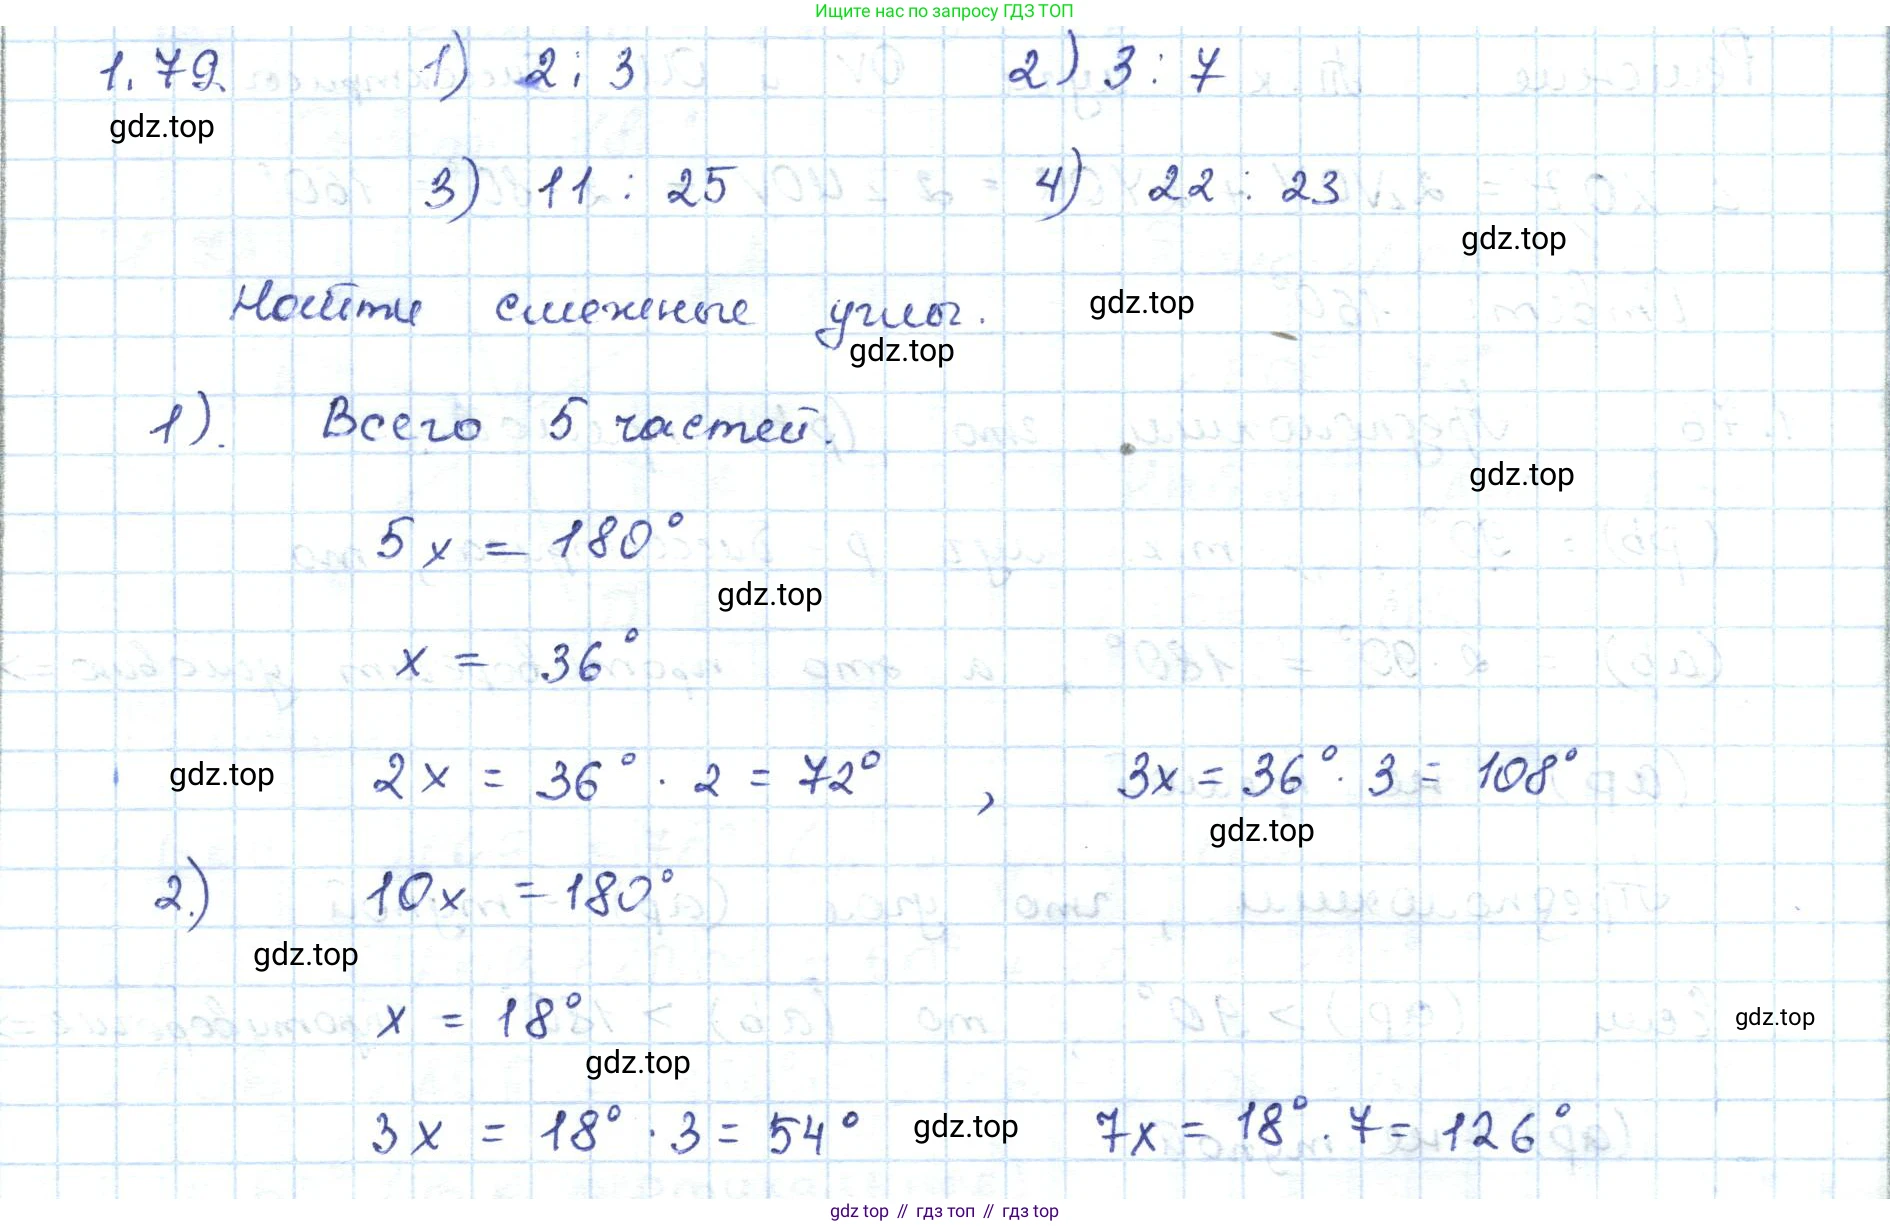 Ищите нас по запросу ГДЗ ТОП
1.79. 1) 2 : 3 2) 3 : 7
gdz.top
3) 11 : 25 4) 22 : 23
gdz.top
Найти смежные углы. gdz.top
gdz.top
1). Всего 5 частей.
gdz.top
5x = 180°
gdz.top
x = 36°
gdz.top 2x = 36° · 2 = 72°, 3x = 36° · 3 = 108°
gdz.top
2.) 10x = 180°
gdz.top
x = 18° gdz.top
gdz.top
3x = 18° · 3 = 54° gdz.top 7x = 18° · 7 = 126°
gdz top // гдз топ // гдз top